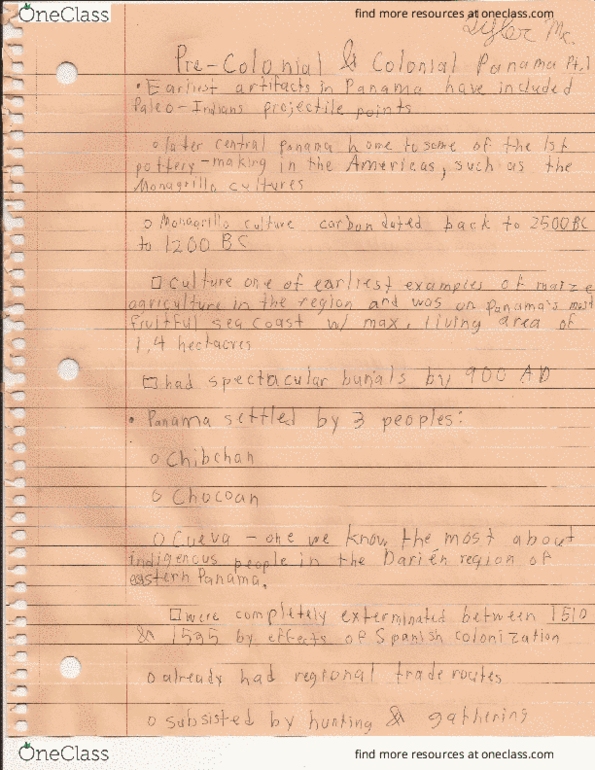 OneClass
find more resources at oneclass.com
Tyler Mc.
Pre-Colonial & Colonial Panama Pt.1
• Earliest artifacts in Panama have included
Paleo-Indians projectile points
o later central panama home to some of the 1st
pottery-making in the Americas, such as the
Monagrillo cultures
o Monagrillo culture carbon dated back to 2500 BC
to 1200 BC
□ Culture one of earliest examples of maize
agriculture in the region and was on Panama's most
fruitful sea coast w/ max. living area of
1.4 hectacres
□ had spectacular burials by 900 AD
• Panama settled by 3 peoples:
o Chibchan
o Chocoan
o Cueva - one we know the most about
indigenous people in the Darién region of
eastern Panama.
□ were completely exterminated between 1510
& 1535 by effects of Spanish colonization
o already had regional trade routes
o subsisted by hunting & gathering
OneClass
find more resources at oneclass.com